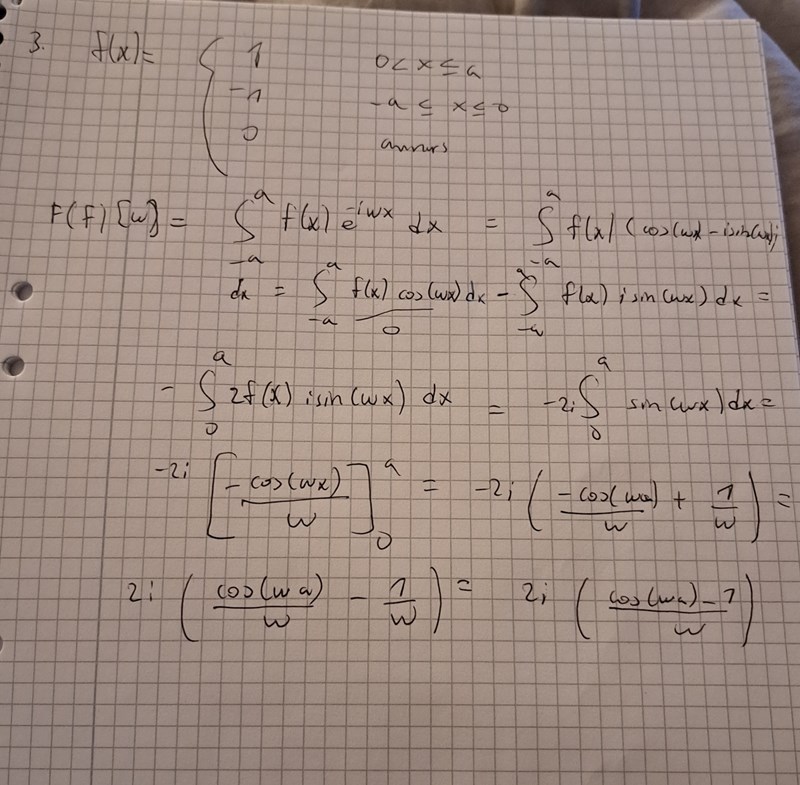 3. f(x)= { 1 0 < x ≤ a
-1 -a ≤ x ≤ 0
0 annars
F(f)[w] = ∫_{-a}^{a} f(x) e^{-iwx} dx = ∫_{-a}^{a} f(x) (cos(wx) - isin(wx))
dx = ∫_{-a}^{a} f(x) cos(wx) dx - ∫_{-a}^{a} f(x) i sin(wx) dx =
0
- ∫_{0}^{a} 2f(x) isin(wx) dx = -2i ∫_{0}^{a} sin(wx) dx =
-2i [ -cos(wx)/w ]_{0}^{a} = -2i ( -cos(wa)/w + 1/w ) =
2i ( cos(wa)/w - 1/w ) = 2i ( (cos(wa) - 1)/w )